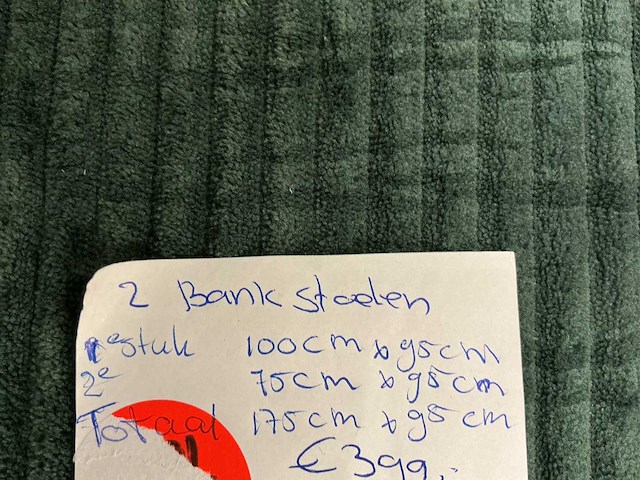 2 Bank stoelen
1e stuk 100cm x 95cm
2e 75cm x 95cm
Totaal 175cm x 95cm
€399,-